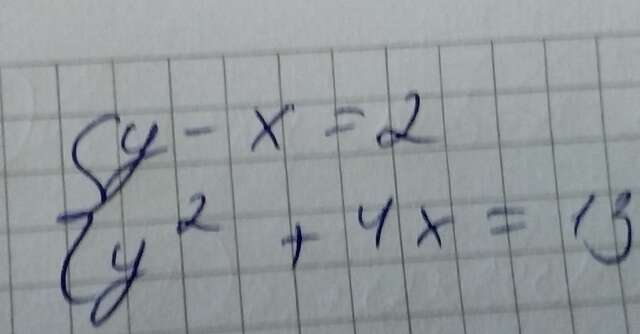 y - x = 2
y² + 4x = 13